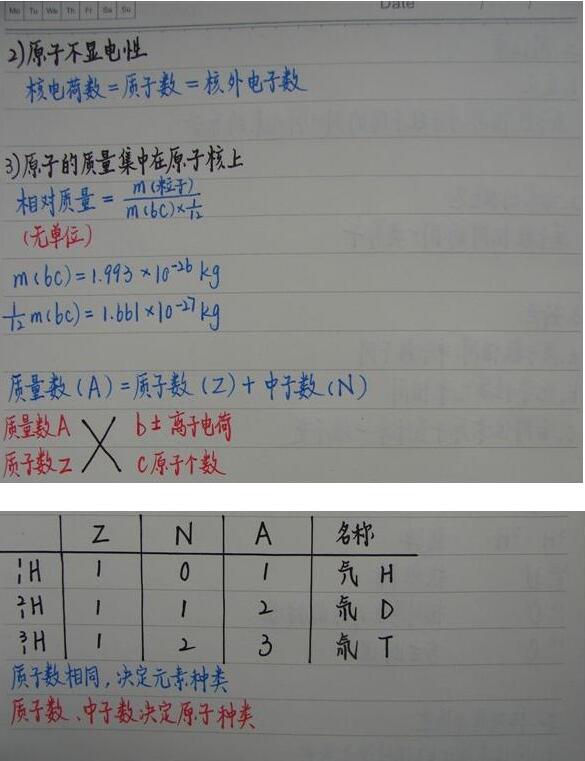 Mo Tu We Th Fr Sa Su
Date / /
2)原子不显电性
核电荷数=质子数=核外电子数
3)原子的质量集中在原子核上
相对质量 = m(粒子) / m(6C)×1/12
(无单位)
m(6C)=1.993×10⁻²⁶kg
1/12 m(6C)=1.661×10⁻²⁷kg
质量数(A)=质子数(Z)+中子数(N)
质量数A X b± 离子电荷
质子数Z c原子个数
Z N A 名称
¹₁H 1 0 1 气 H
²₁H 1 1 2 氘 D
³₁H 1 2 3 氚 T
质子数相同,决定元素种类
质子数、中子数决定原子种类